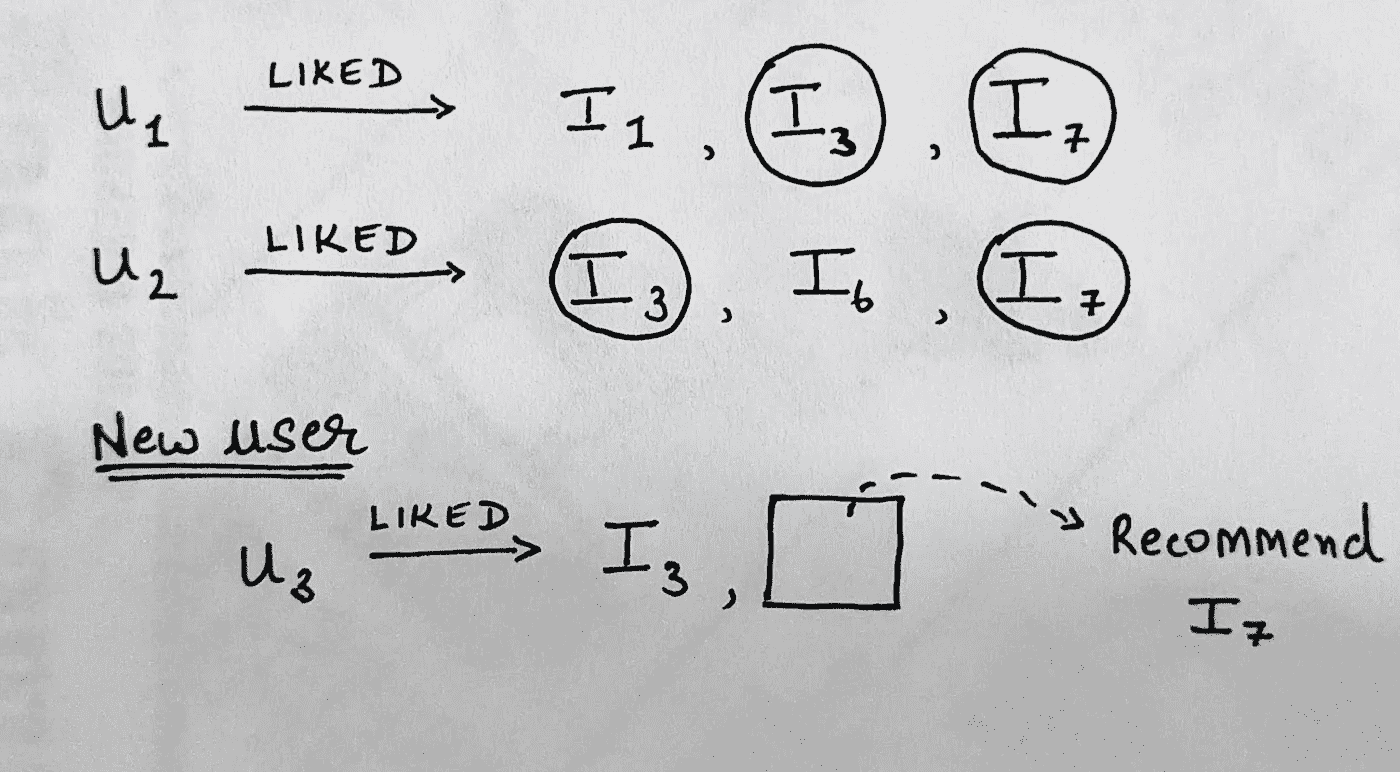 U1 LIKED I1 , I3 , I7
U2 LIKED I3 , I6 , I7
New user
U3 LIKED I3 , Recommend
I7